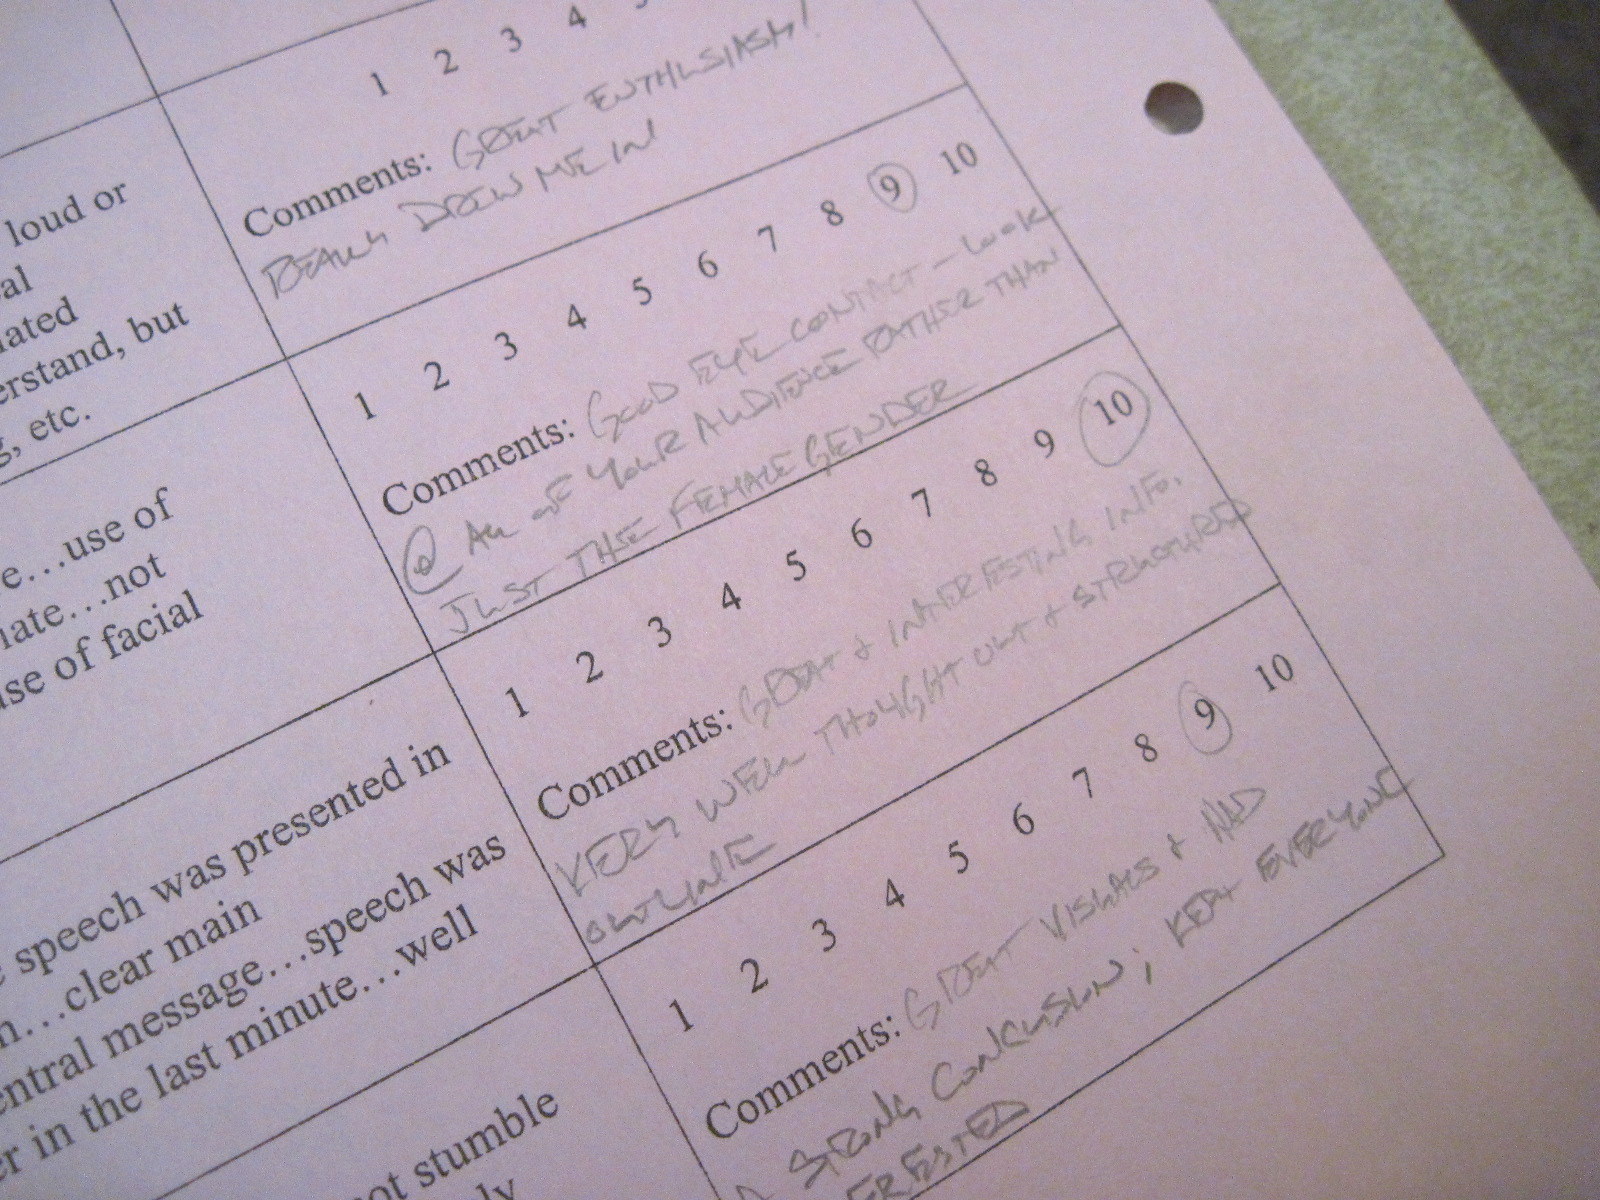 1 2 3 4
Comments: GREAT ENTHUSIASM!
REALLY DREW ME IN
loud or
ated
erstand, but
g, etc.
1 2 3 4 5 6 7 8 9 10
Comments: GOOD EYE CONTACT - LOOK
@ ALL OF YOUR AUDIENCE RATHER THAN
JUST THE FEMALE GENDER
e...use of
iate...not
use of facial
1 2 3 4 5 6 7 8 9 10
Comments: GREAT & INTERESTING INFO.
VERY WELL THOUGHT OUT & STRUCTURED
OUTLINE
speech was presented in
n...clear main
entral message...speech was
er in the last minute...well
1 2 3 4 5 6 7 8 9 10
Comments: GREAT VISUALS & HAD
A STRONG CONCLUSION; KEPT EVERYONE
ERESTED
not stumble
ly